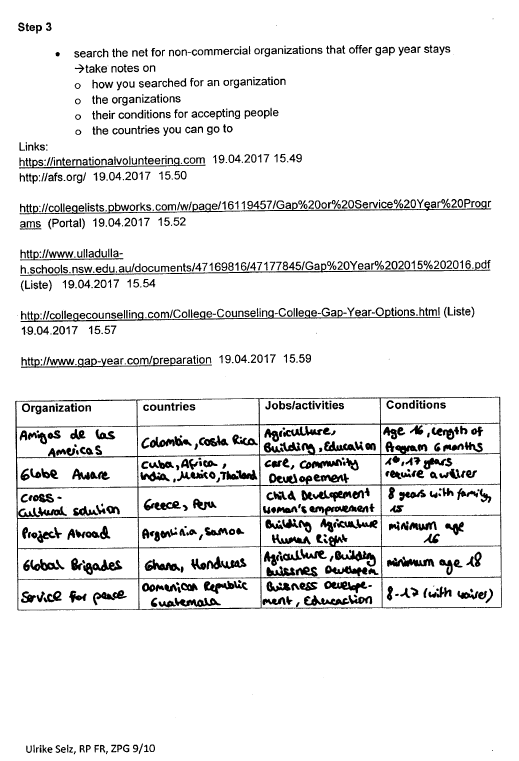 Step 3
• search the net for non-commercial organizations that offer gap year stays
→take notes on
o how you searched for an organization
o the organizations
o their conditions for accepting people
o the countries you can go to
Links:
https://internationalvolunteering.com 19.04.2017 15.49
http://afs.org/ 19.04.2017 15.50
http://collegelists.pbworks.com/w/page/16119457/Gap%20or%20Service%20Year%20Progr
ams (Portal) 19.04.2017 15.52
http://www.ulladulla-
h.schools.nsw.edu.au/documents/47169816/47177845/Gap%20Year%202015%202016.pdf
(Liste) 19.04.2017 15.54
http://collegecounselling.com/College-Counseling-College-Gap-Year-Options.html (Liste)
19.04.2017 15.57
http://www.gap-year.com/preparation 19.04.2017 15.59
Organization countries Jobs/activities Conditions
Amigos de las Americas Colombia, Costa Rica Agriculture, Building, Education Age 16, length of Program 6 months
Globe Aware Cuba, Africa, India, Mexico, Thailand care, community Developement 16, 17 years require a
Cross-Cultural solution Greece, Peru Child Developement woman's 8 years with family, 15
Project Abroad Argentinia, Samoa Building Agriculture Human Right minimum age 16
Global Brigades Ghana, Honduras Agriculture, Building minimum age 18
Service for peace Domenican Republic Guatemala Business Develope-ment, 8-17 (with waiver)
Ulrike Selz, RP FR, ZPG 9/10